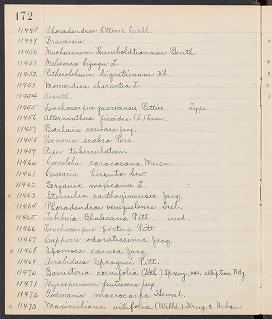 172
11448 Phoradendron Ottonis Eichl.
11449 Bravaisia
11450 Machaerium Humboldtianum Benth.
11451 Melicocca bijuga L.
11452 Pithecolobium ligustrinum Kl.
11453 Momordica charantia L.
11454 Acanth
11455 Lonchocarpus Pittier Type
11456 Alternanthera ficoidea (L)
11457 Bourreria
11458 Vernonia scabra Pers
11459 tuberculatum
11460 Coccoloba caracasana Meisn.
11461 Casearia
11462 Serjania mexicana L.
11463 Sterculia carthaginensis Jacq.
11464 Phoradendron venezuelense Trel.
11465 Tabebuia Blakeana Pitt. ined.
11466 Lonchocarpus pictus Pitt.
11467 Capparis odoratissima Jacq.
11468 Ipomoea carnea Jacq.
11469 Arrabidaea Spraguei Pitt.
11470 Banisteria cornifolia (HBK) Spreng. var. elliptica Ndz.
11471 fruticosa Jacq.
11472 macrocarpa Hemsl.
11473 Maximiliana vitifolia (Willd.) Krug. & Urban